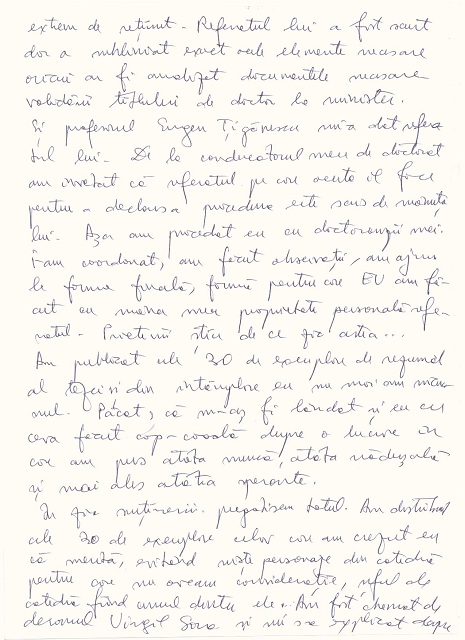 extrem de reținut. Referatul lui a fost scurt
dar a subliniat exact acele elemente necesare
oricui ar fi analizat documentele necesare
validării titlului de doctor la minister.
Și profesorul Eugen Țigănescu mi-a dat refera-
tul lui. De la conducătorul meu de doctorat
am învățat că referatul pe care acesta îl face
pentru a declanșa procedura este scris de mânuța
lui. Așa am procedat eu cu doctoranzii mei.
I-am coordonat, am făcut observații, am ajuns
la forma finală, formă pentru care EU am fă-
cut cu mâna mea proprietate personală refe-
ratul. Prietenii știu de ce fac asta...
Am publicat cele 30 de exemplare de rezumat
al tezei și din întâmplare eu nu mai am niciu-
nul. Păcat, că m-aș fi lăudat și eu cu
ceva făcut cap-coadă despre o lucrare în
care am pus atâta muncă, atâta nădejde
și mai ales atâtea speranțe.
În ziua susținerii pregătisem totul. Am distribuit
cele 30 de exemplare celor care am crezut eu
că merită, evitând niște personaje din catedră
pentru care nu aveam considerație, șeful de
catedră fiind unul dintre ele. Am fost chemat de
decanul Virgil Sora și mi s-a explicat despre